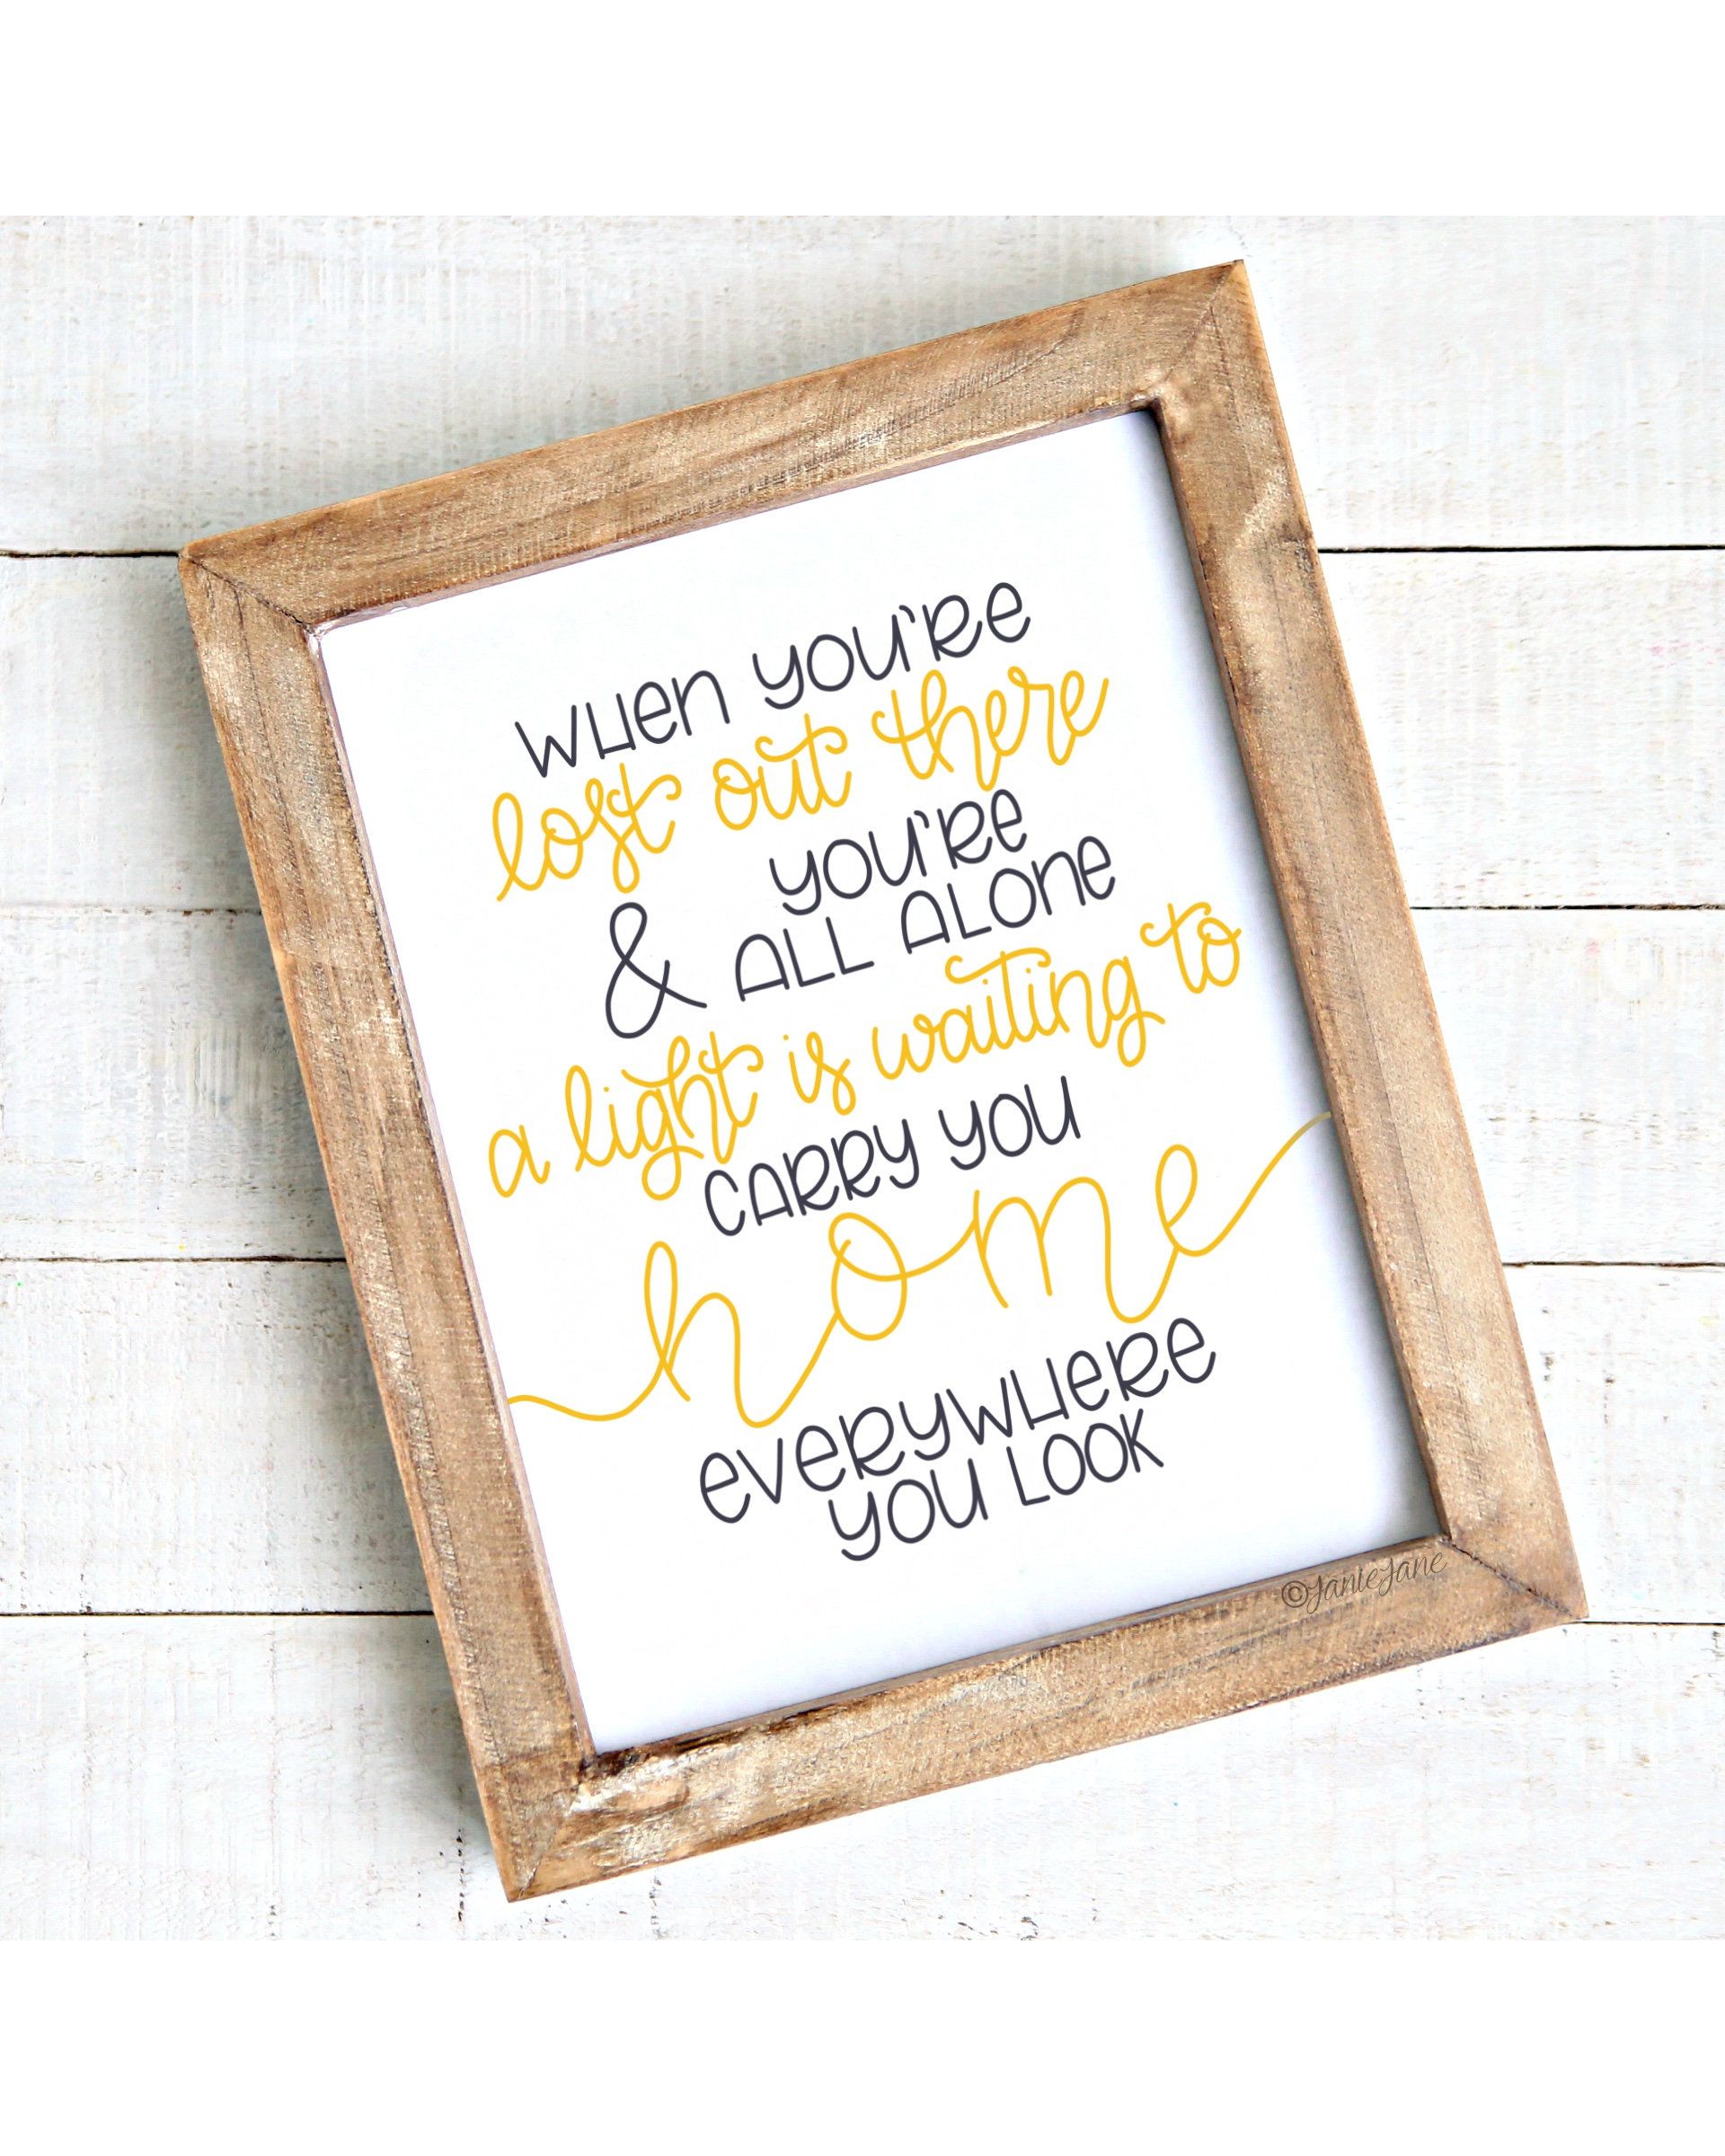 WHEN YOU'RE
lost out there
& YOU'RE
ALL ALONE
a light is waiting to
CARRY YOU
home
EVERYWHERE
YOU LOOK
©JanieJane